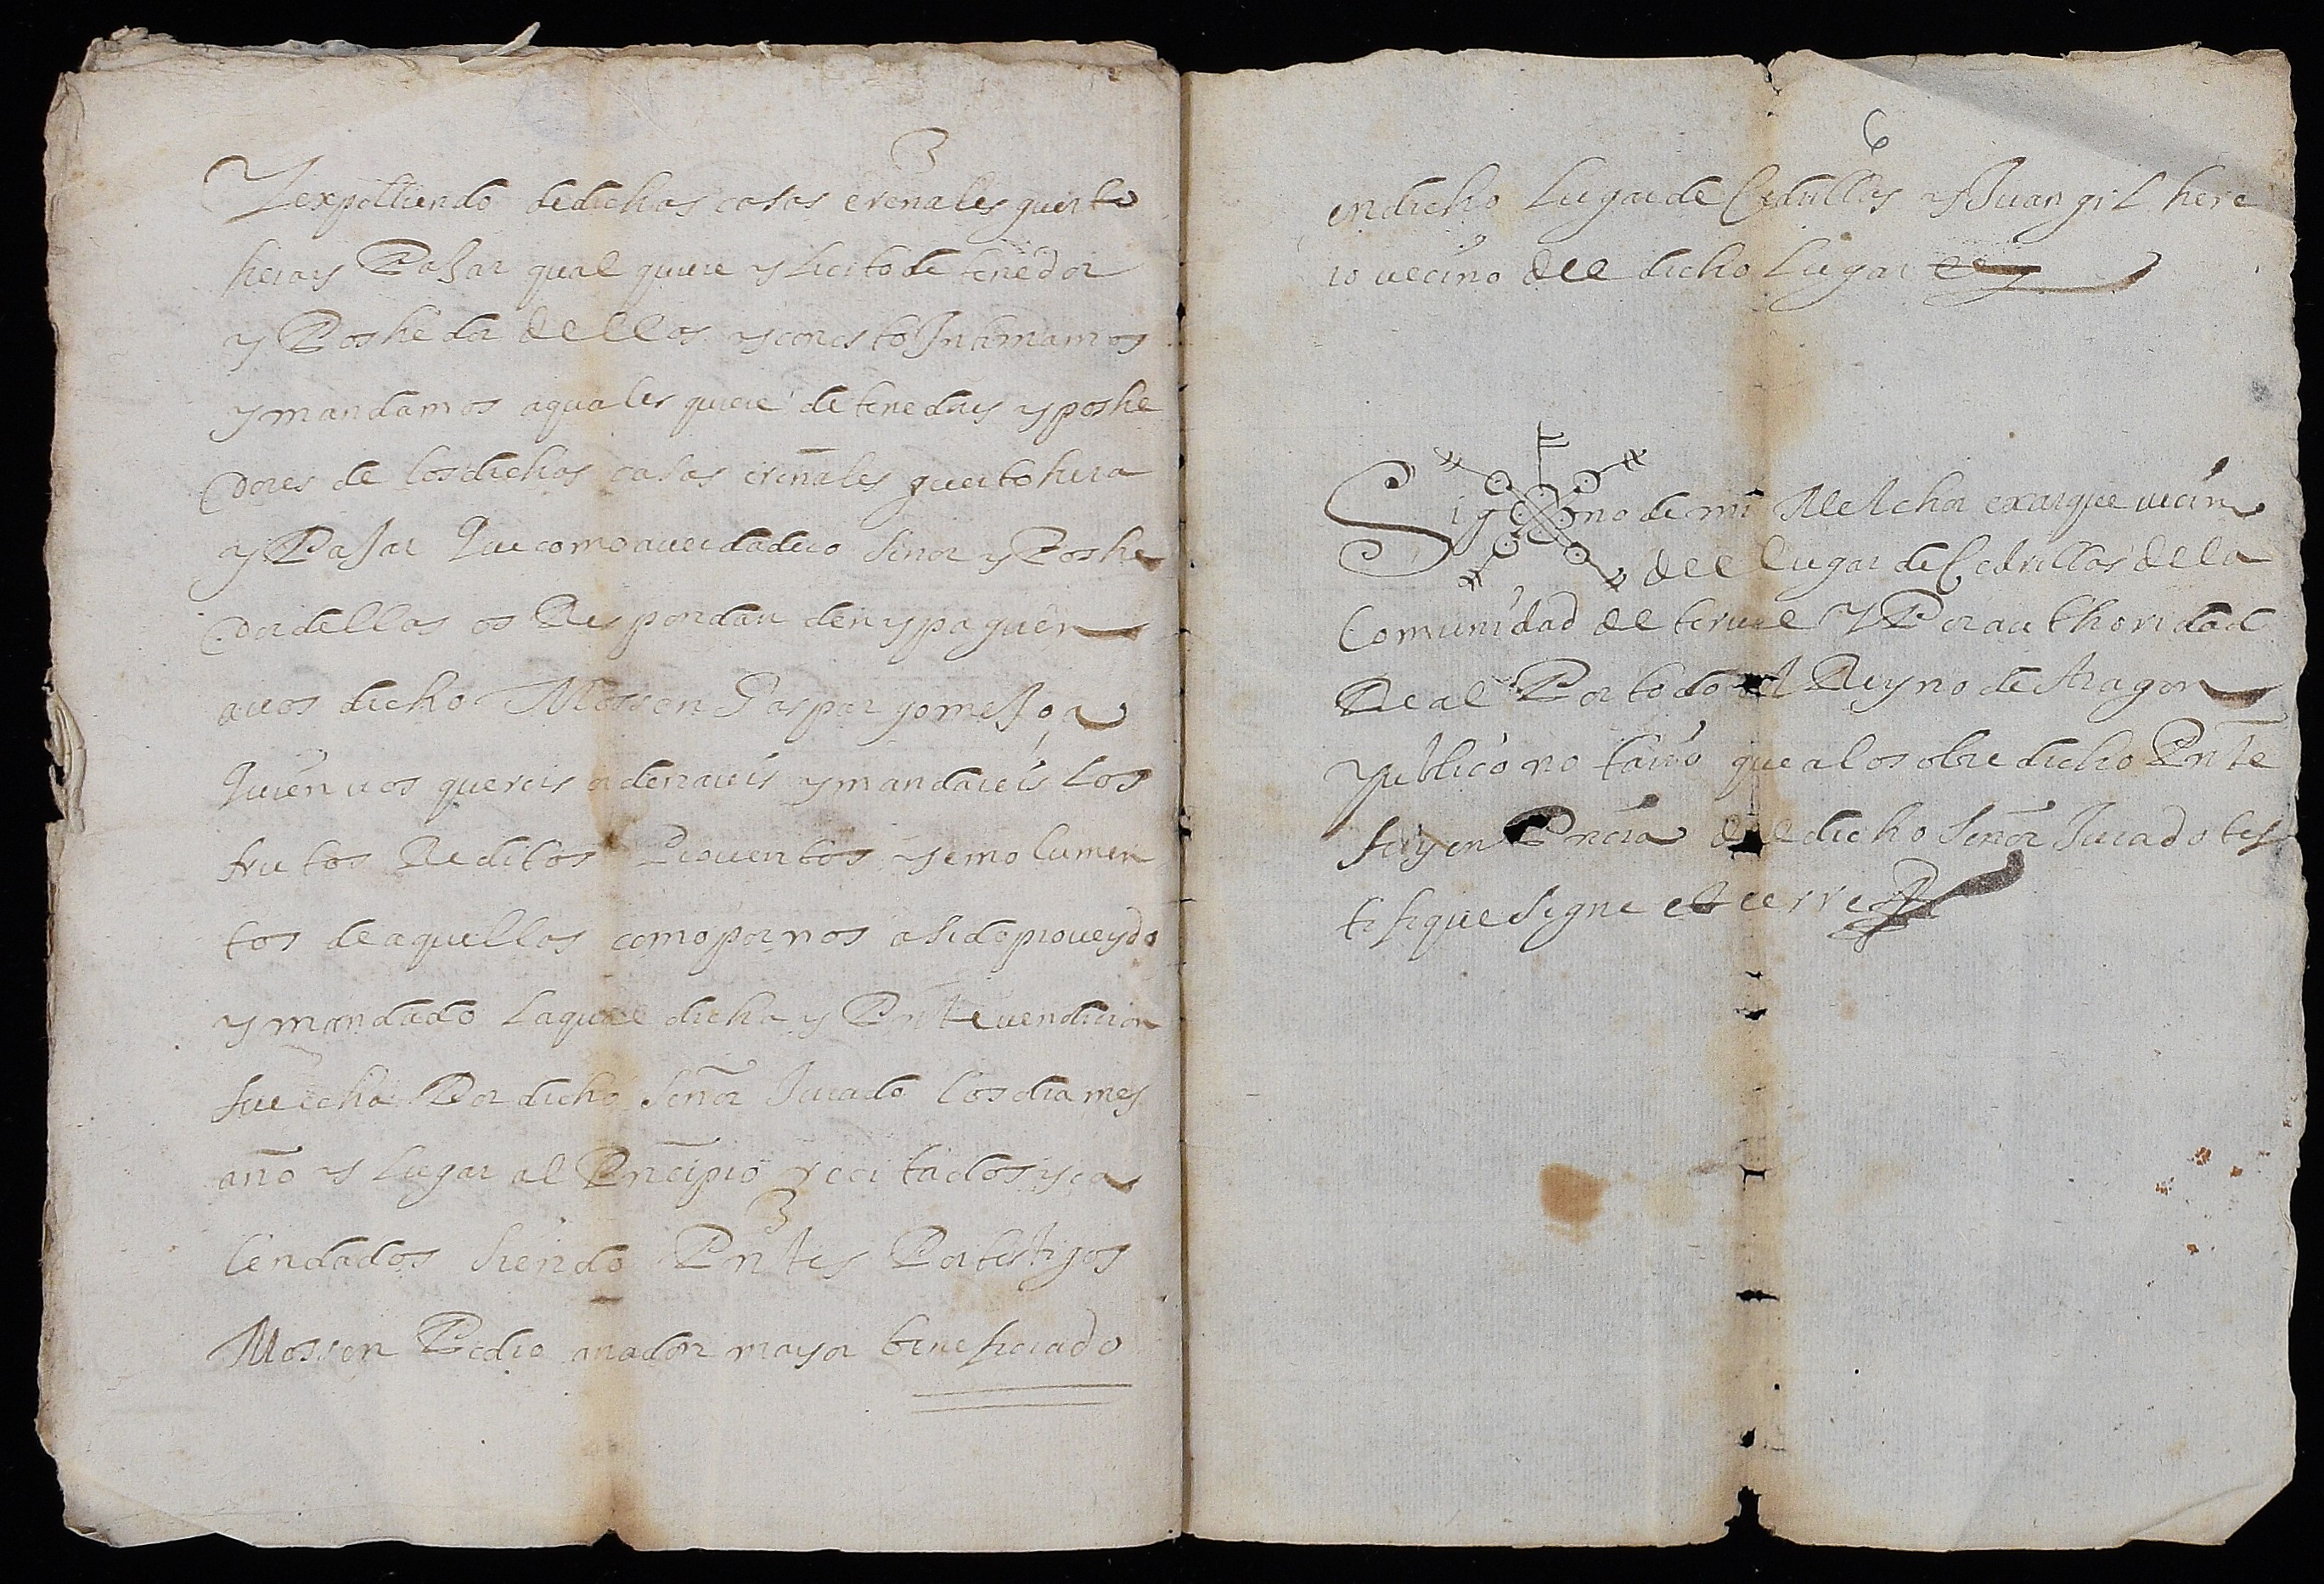 Y expelliendo de dichas casas erenales guerto
hera y Pajar qual quiere y licito detenedor
y Poshedor dellos y con esto Intimamos
y mandamos a quales quiere detenedres y poshe
dores de los dichos casas erenales guerto hera
y Pajar Que como a verdadero Señor y Poshe
dor dellas os Respondan den y paguen
a vos dicho Mossen Gaspar gomes o a
Quien vos quereis ordenareis y mandareis Los
frutos Reditos Proventos y emolumen
tos de aquellas como por nos a sido proueydo
y mandado La qual dicha y Pnte vendicion
fue echa Por dicho Señor Jurado Los dia mes
año y Lugar al Prncipio recitados y ca
lendados siendo Pntes Por testigos
Mossen Pedro mayor beneficiado
6
en dicho Lugar de Cedrillas y Juan gil here
ro vecino del dicho Lugar
Sig no de mi Melchor exarque vecino
del Lugar de Cedrillas de la
Comunidad de teruel Y Por authoridad
Real Por todo el Reyno de Aragon
publico notario que a lo sobre dicho Pnte
fuy en Pncia del dicho Señor Jurado tes
tifique signe et cerre